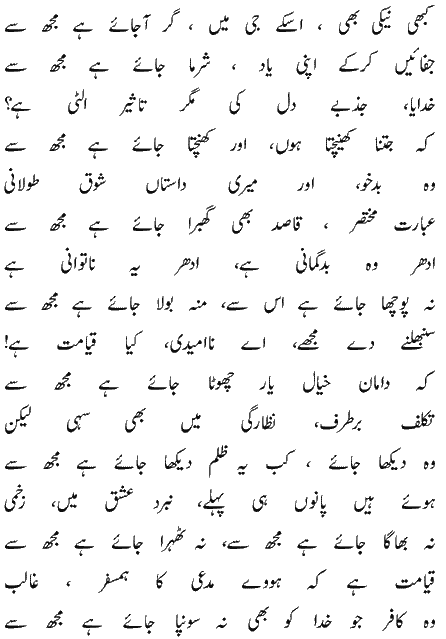 کبھی نیکی بھی ، اسکے جی میں ، گر آجائے ہے مجھ سے
جفائیں کرکے اپنی یاد ، شرما جائے ہے مجھ سے
خدایا، جذبۂ دل کی مگر تاثیر الٹی ہے؟
کہ جتنا کھینچتا ہوں، اور کھنچتا جائے ہے مجھ سے
وہ بدخو، اور میری داستاں شوق طولانی
عبارت مختصر ، قاصد بھی گھبرا جائے ہے مجھ سے
ادھر وہ بدگمانی ہے، ادھر یہ ناتوانی ہے
نہ پوچھا جائے ہے اس سے، منہ بولا جائے ہے مجھ سے
سنبھلنے دے مجھے، اے ناامیدی، کیا قیامت ہے!
کہ دامان خیال یار چھوٹا جائے ہے مجھ سے
تکلف برطرف، نظارگی میں بھی سہی لیکن
وہ دیکھا جائے ، کب یہ ظلم دیکھا جائے ہے مجھ سے
ہوئے ہیں پانوں ہی پہلے، نبرد عشق میں، زخمی
نہ بھاگا جائے ہے مجھ سے، نہ ٹھہرا جائے ہے مجھ سے
قیامت ہے کہ ہووے مدعی کا ہمسفر ، غالب
وہ کافر جو خدا کو بھی نہ سونپا جائے ہے مجھ سے